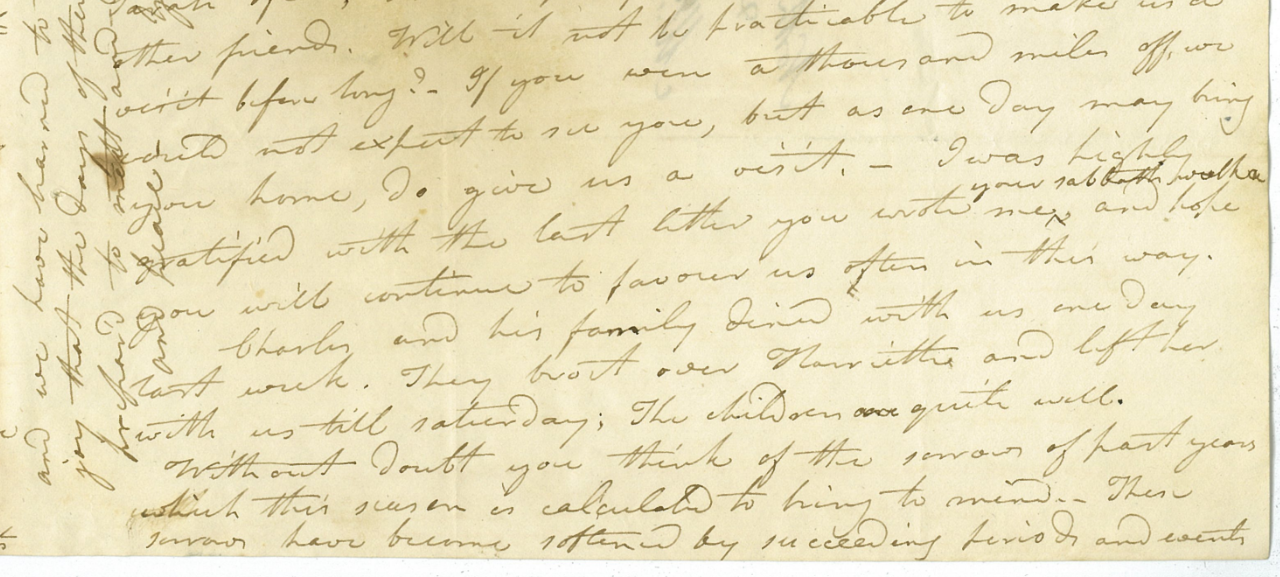 other friends. Will it not be practicable to make us a
visit before long?- If you were a thousand miles off, we
would not expect to see you, but as one Day may bring
you home, do give us a visit. - I was highly
your sabbath walk a
gratified with the last letter you wrote me, and hope
you will continue to favour us often in this way.
Charles and his family dined with us one day
last week. They brot over Harriette and left her
with us till saturday; The children are quite well.
Without doubt you think of the sorrows of past years
which this season is calculated to bring to mind.- These
sorrows have become softened by succeeding periods and events
and we have learned to
joy that the days of their
prepared to meet
and peace